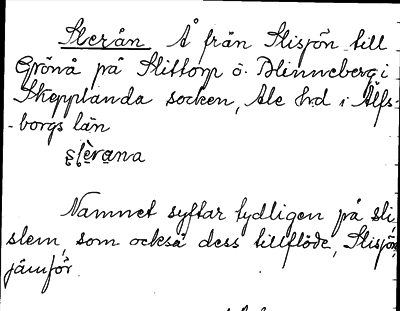 Slerån Å från Slisjön till
Grönå på Slittorp o. Blinneberg i
Skepplanda socken, Ale hrd i Älfs-
-borgs län
Namnet syftar tydligen på sli,
slem, som också dess tillflöde, Slisjön,
jämför.